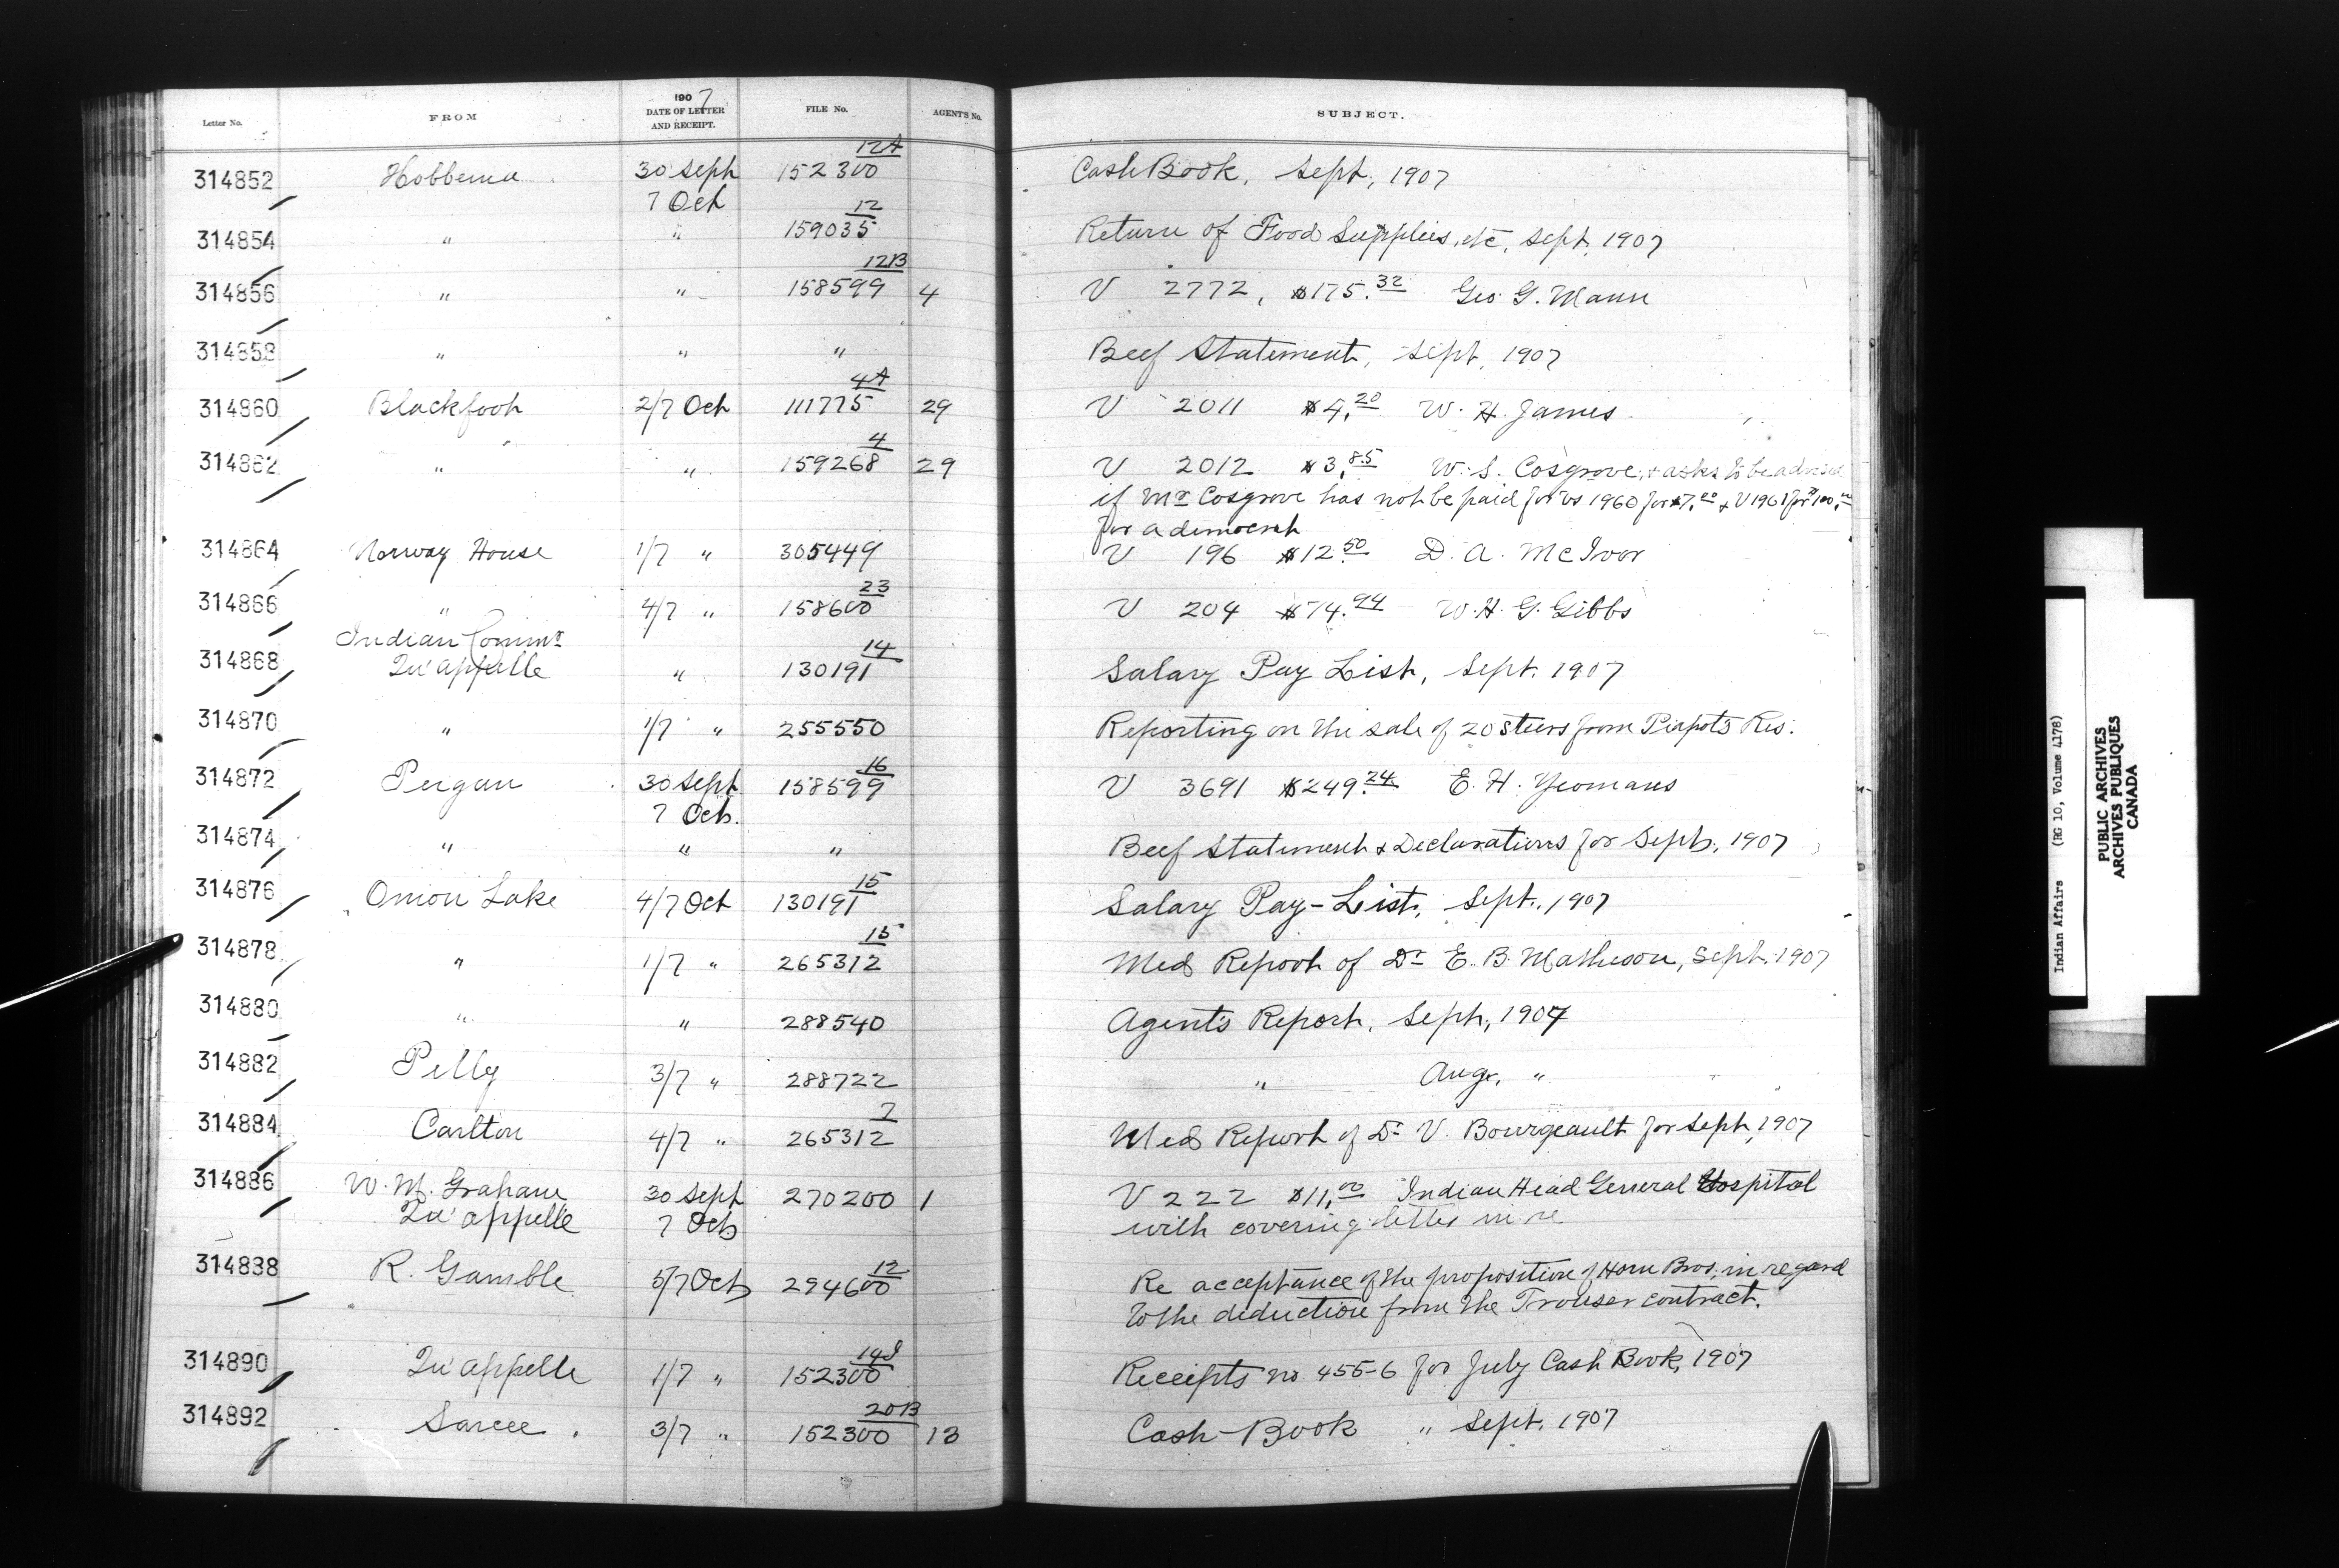 Letter No. FROM 1907 DATE OF LETTER AND RECEIPT. FILE No. AGENT'S No. SUBJECT.
314852 Hobbema 30 Sept 7 Oct 152300 12A Cash Book, Sept, 1907
314854 " " 159035 12 Return of Food Supplies, etc, Sept. 1907
314856 " " 158599 12B 4 V 2772, $175.32 Geo. G. Mann
314858 " " " Beef Statement, Sept. 1907
314860 Blackfoot 2/7 Oct 111775 4A 29 V 2011 $4.20 W. H. James
314862 " " 159268 4 29 V 2012 $3.85 W. S. Cosgrove, & asks to be advised
if Mr Cosgrove has not be paid for Vs 1960 for $7.00 & V 1961 for $100.00
for a democrat
314864 Norway House 1/7 " 305449 V 196 $12.50 D. A. McIvor
314866 " 4/7 " 158600 23 V 204 $74.94 W. H. G. Gibbs
Indian Commr
314868 Qu'appelle " 130191 14 Salary Pay List, Sept. 1907
314870 " 1/7 " 255550 Reporting on the sale of 20 steers from Piapot's Res.
314872 Peigan 30 Sept 7 Oct. 158599 16 V 3691 $249.24 E. H. Yeomans
314874 " " " Beef Statement & Declarations for Sept, 1907
314876 Onion Lake 4/7 Oct 130191 15 Salary Pay-List, Sept., 1907
314878 " 1/7 " 265312 15 Med Report of Dr E. B. Matheson, Sept. 1907
314880 " " 288540 Agent's Report, Sept, 1907
314882 Pelly 3/7 " 288722 " Aug., "
314884 Carlton 4/7 " 265312 7 Med Report of Dr V. Bourgeault for Sept, 1907
314886 W. M. Graham 30 Sept 270200 1 V 222 $11.00 Indian Head General Hospital
Qu'appelle 7 Oct with covering letter in re
314888 R. Gamble 5/7 Oct 294600 12 Re acceptance of the proposition of Horn Bros. in regard
to the deduction from the Trouser contract.
314890 Qu'appelle 1/7 " 152300 14J Receipts no. 455-6 for July Cash Book, 1907
314892 Sarcee 3/7 " 152300 20B 13 Cash Book " Sept. 1907
Indian Affairs (RG 10, Volume 4178)
PUBLIC ARCHIVES
ARCHIVES PUBLIQUES
CANADA